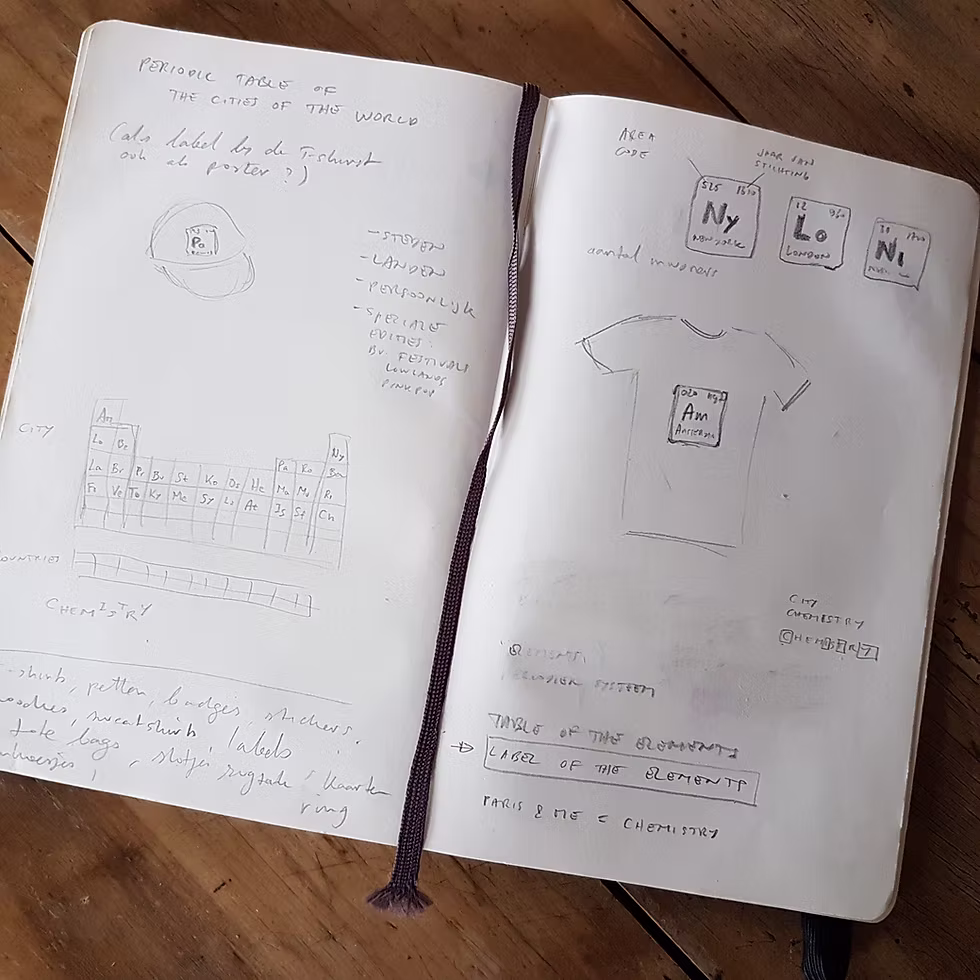 PERIODIC TABLE OF
THE CITIES OF THE WORLD
(als label bij de T-shirst
ook als poster?)
- STEDEN
- LANDEN
- PERSOONLIJK
- SPECIALE
EDITIES:
BV. FESTIVALS
LOWLANDS
PINKPOP
CITY
Am
Ny
Lo
La Br Pr Bu St Ko Os He Pa Ro
Fi Ve To Ky Me Sy At Ma Ri
Is St Ch
COUNTRIES
CHEMISTRY
-shirts, petten, badges, stickers.
hoodies, sweatshirts, labels
tote bags
kaarten
ring
AREA
CODE
JAAR VAN
STICHTING
Ny
NEW YORK
12
Lo
LONDON
Ni
aantal inwoners
020
Am
AMSTERDAM
CITY
CHEMISTRY
CHEMISTRY
ELEMENTS,
PERIODIEK SYSTEEM
TABLE OF THE ELEMENTS
→ LABEL OF THE ELEMENTS
PARIS & ME = CHEMISTRY